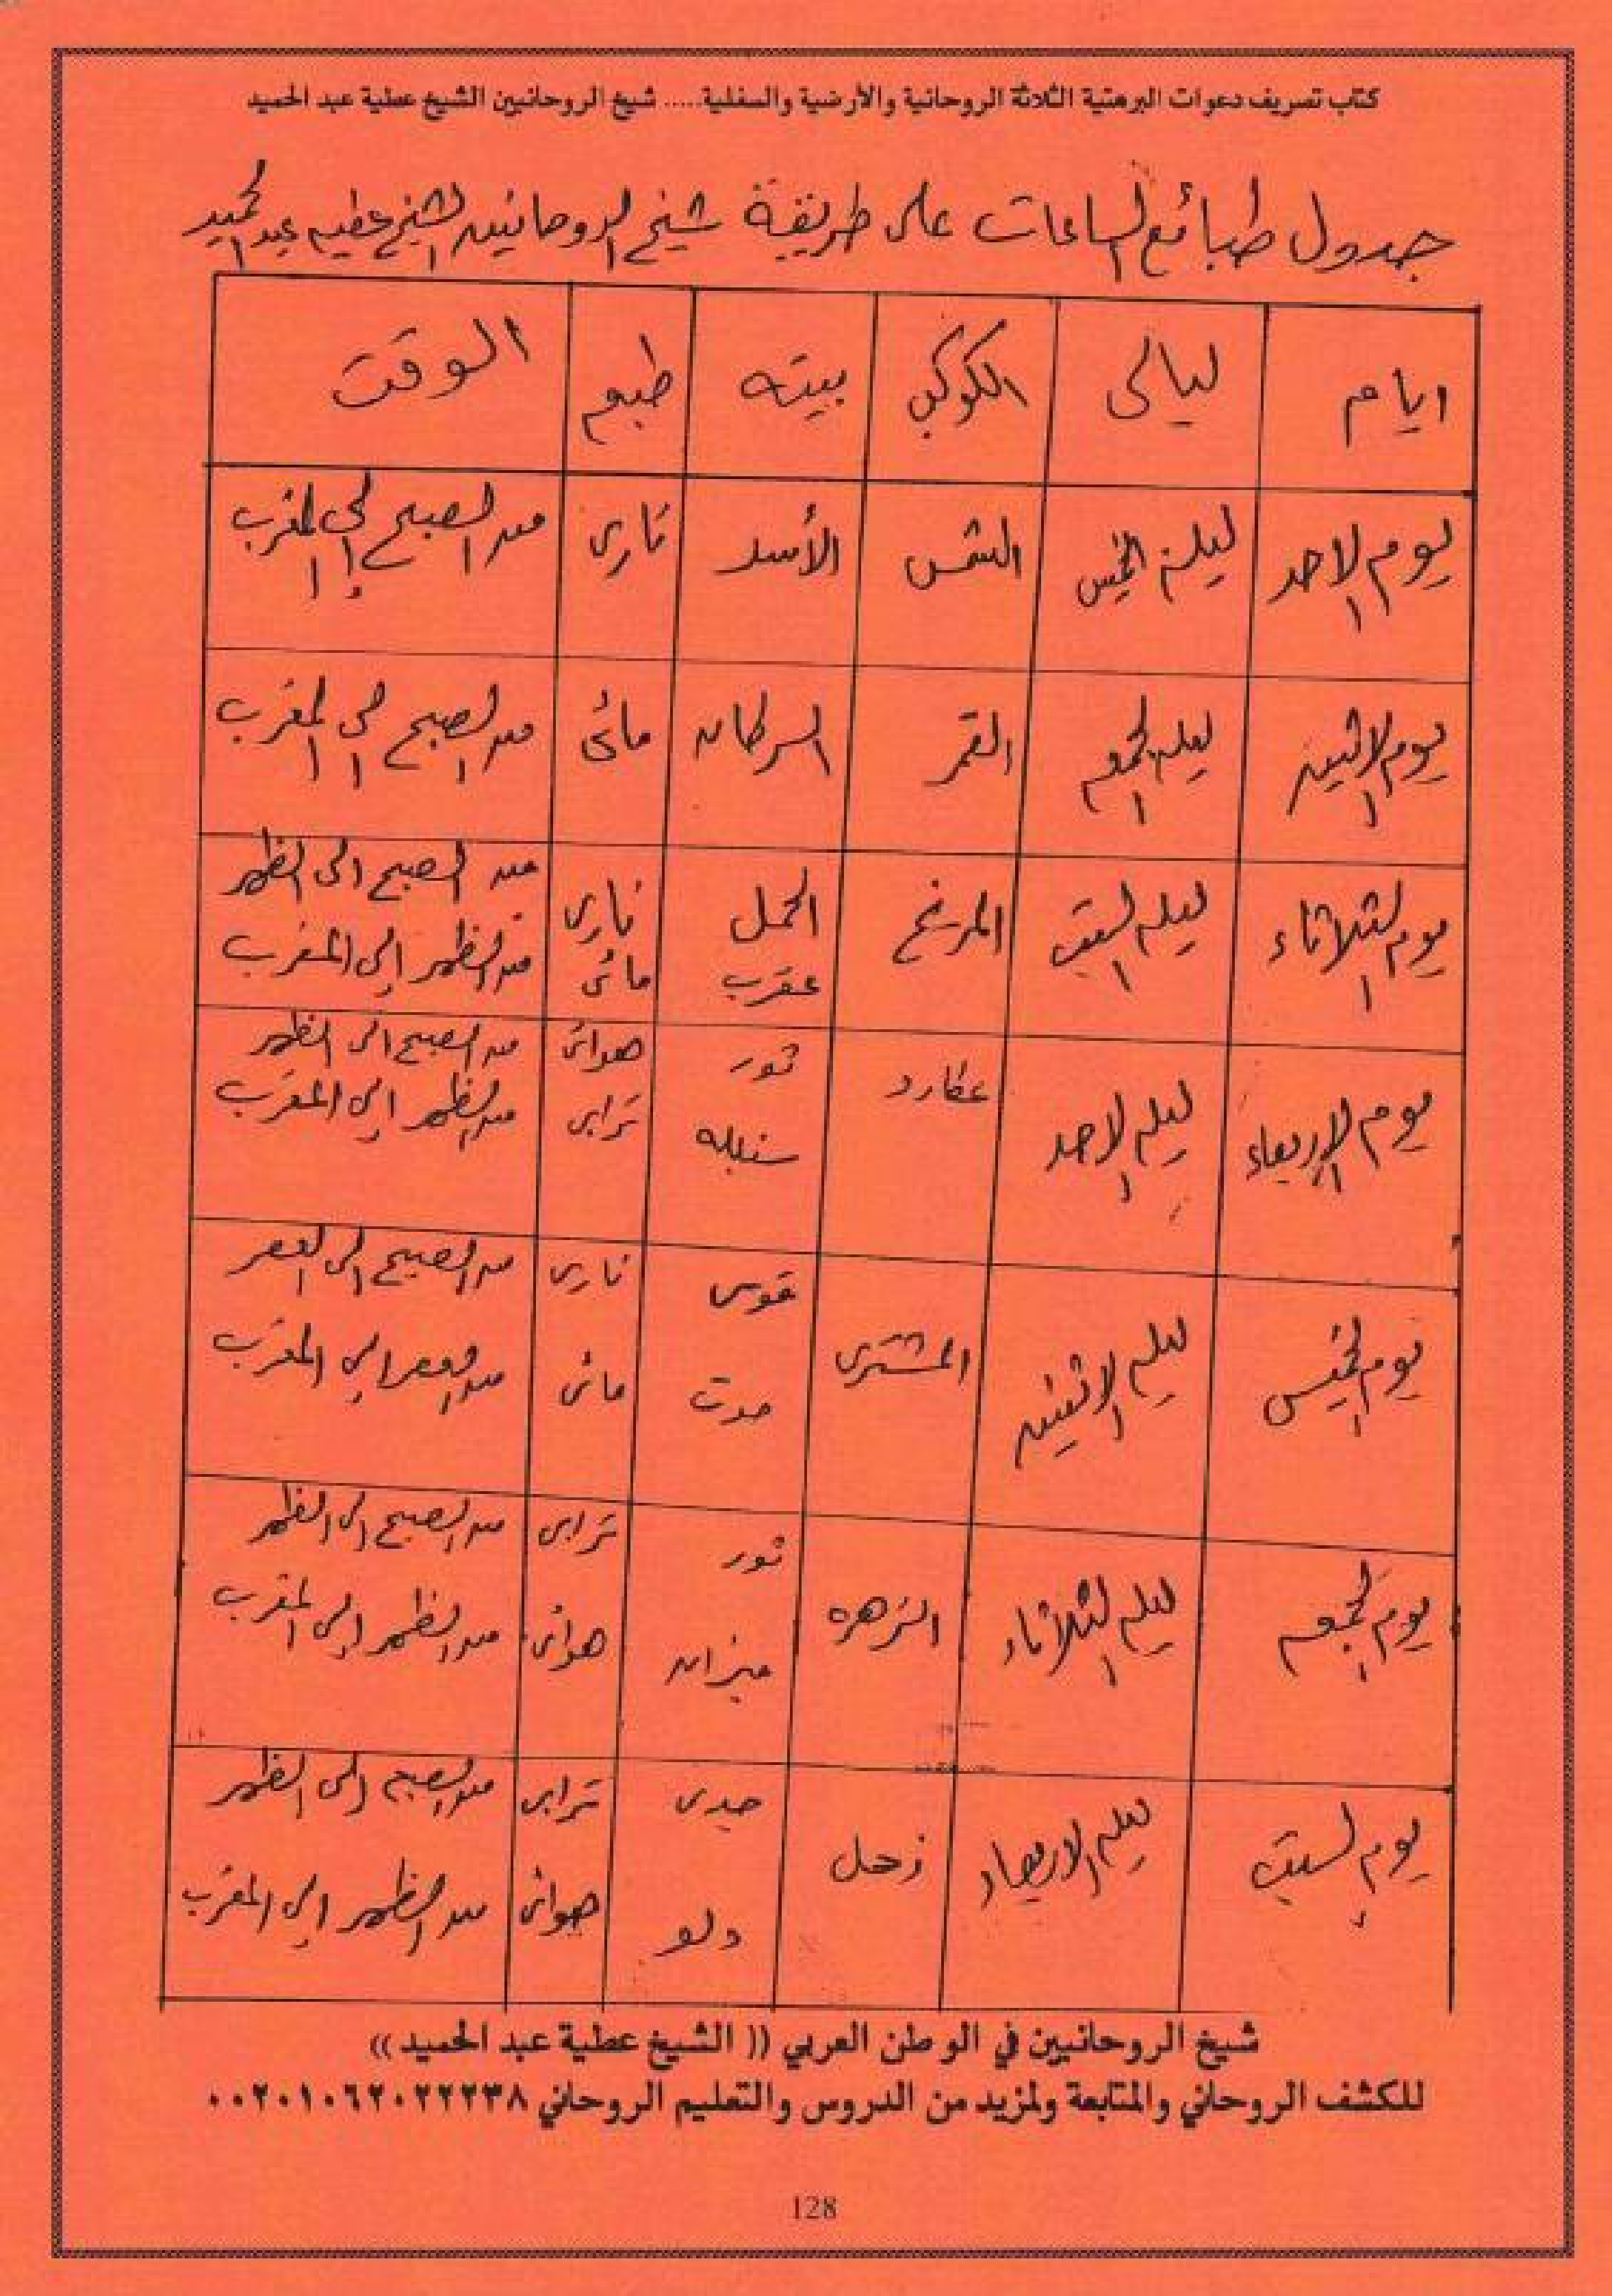 كتاب تصريف دعوات البرهتية الثلاثة الروحانية والأرضية والسفلية..... شيخ الروحانيين الشيخ عطية عبد الحميد
جدول طبائع الساعات على طريقة شيخ الروحانين الشيخ عطيه عبد الحميد
ايام ليالى الكوكب بيته طبع الوقت
يوم الاحد ليلة الخميس الشمس الأسد نارى من الصبح إلى المغرب
يوم الاثنين ليله الجمعه القمر السرطان مائى من الصبح الى المغرب
يوم الثلاثاء ليله السبت المريخ الحمل نارى من الصبح الى الظهر
عقرب مائى من الظهر إلى المغرب
يوم الاربعاء ليله الاحد عطارد ثور هوائى من الصبح الى الظهر
سنبله ترابى من الظهر إلى المغرب
يوم الخميس ليله الاثنين المشترى قوس نارى من الصبح الى العصر
حوت مائى من العصر إلى المغرب
يوم الجمعه ليله الثلاثاء الزهره ثور ترابى من الصبح الى الظهر
ميزان هوائى من الظهر إلى المغرب
يوم السبت ليله الاربعاء زحل جدى ترابى من الصبح إلى الظهر
دلو هوائى من الظهر إلى المغرب
شيخ الروحانيين في الوطن العربي (( الشيخ عطية عبد الحميد ))
للكشف الروحاني والمتابعة ولمزيد من الدروس والتعليم الروحاني ٠٠٢٠١٠٦٢٠٢٢٢٣٨
128